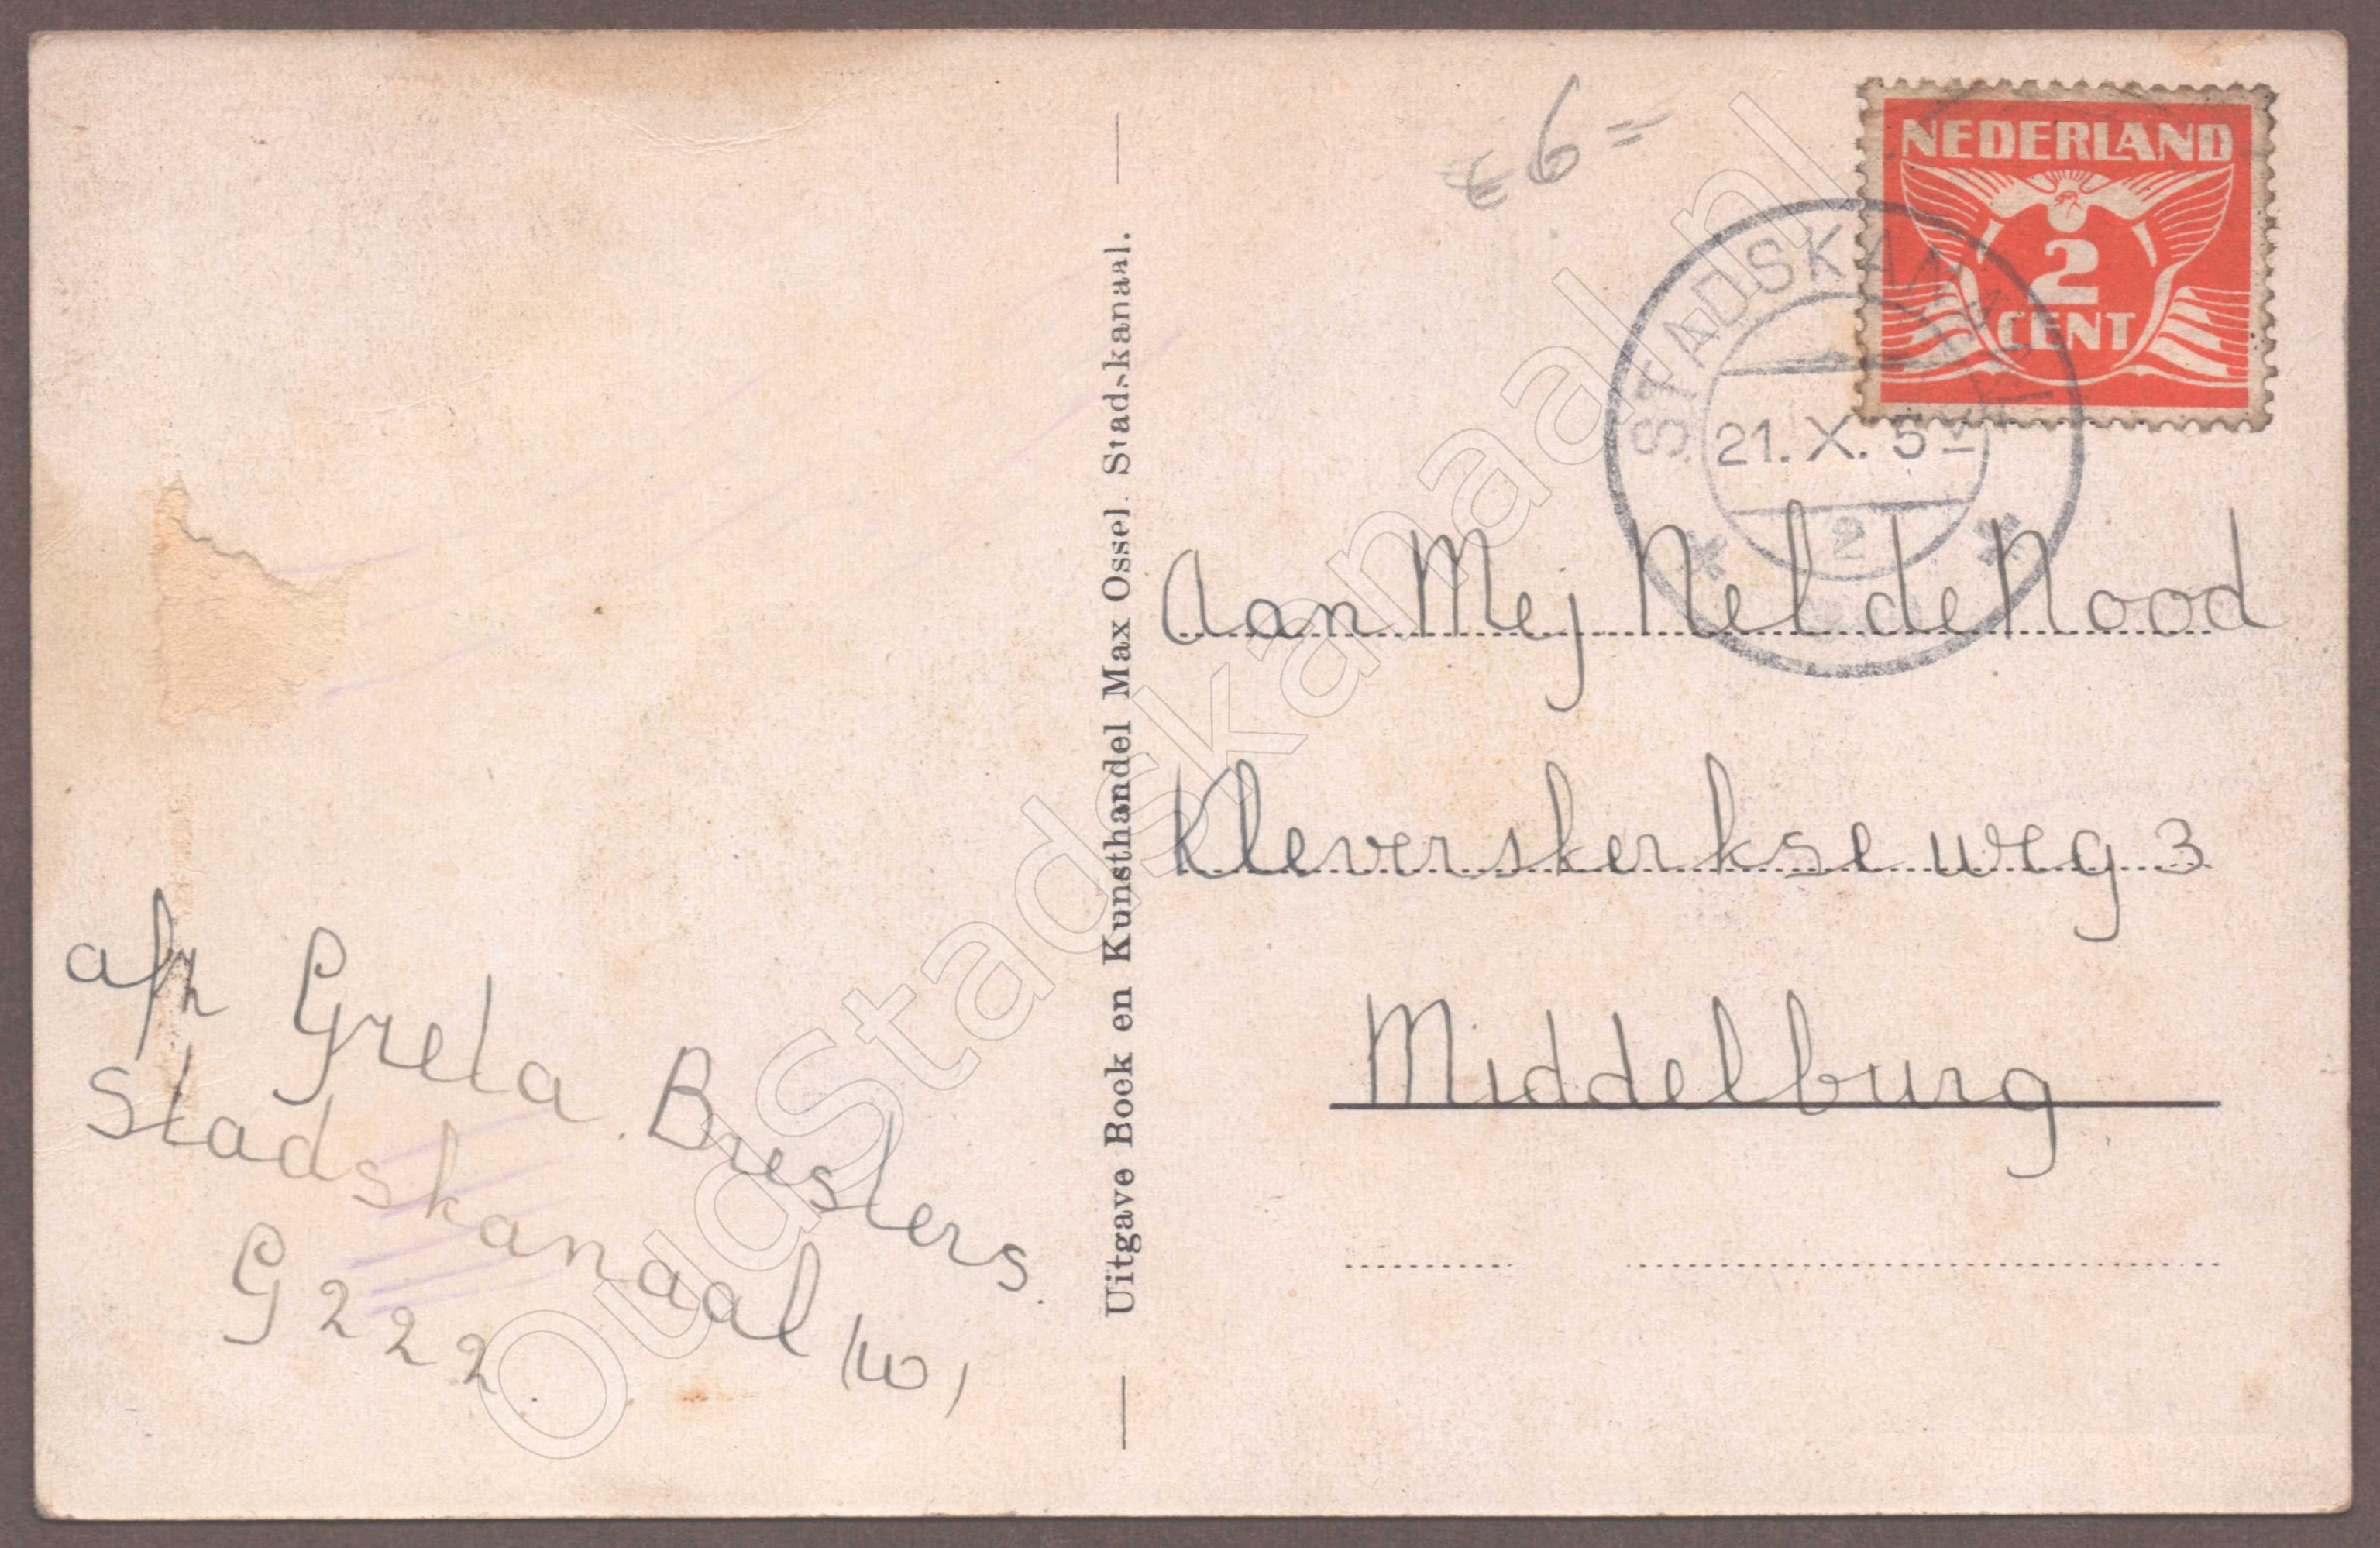 € 6 =
NEDERLAND
2
CENT
STADSKANAAL
21. X. 5
2
Aan Mej Nel de Nood
Kleverskerkse weg 3
Middelburg
Uitgave Boek en Kunsthandel Max Ossel. Stadskanaal.
afz Greta Breslers
Stadskanaal (w)
G 222.
OudStadskanaal.nl